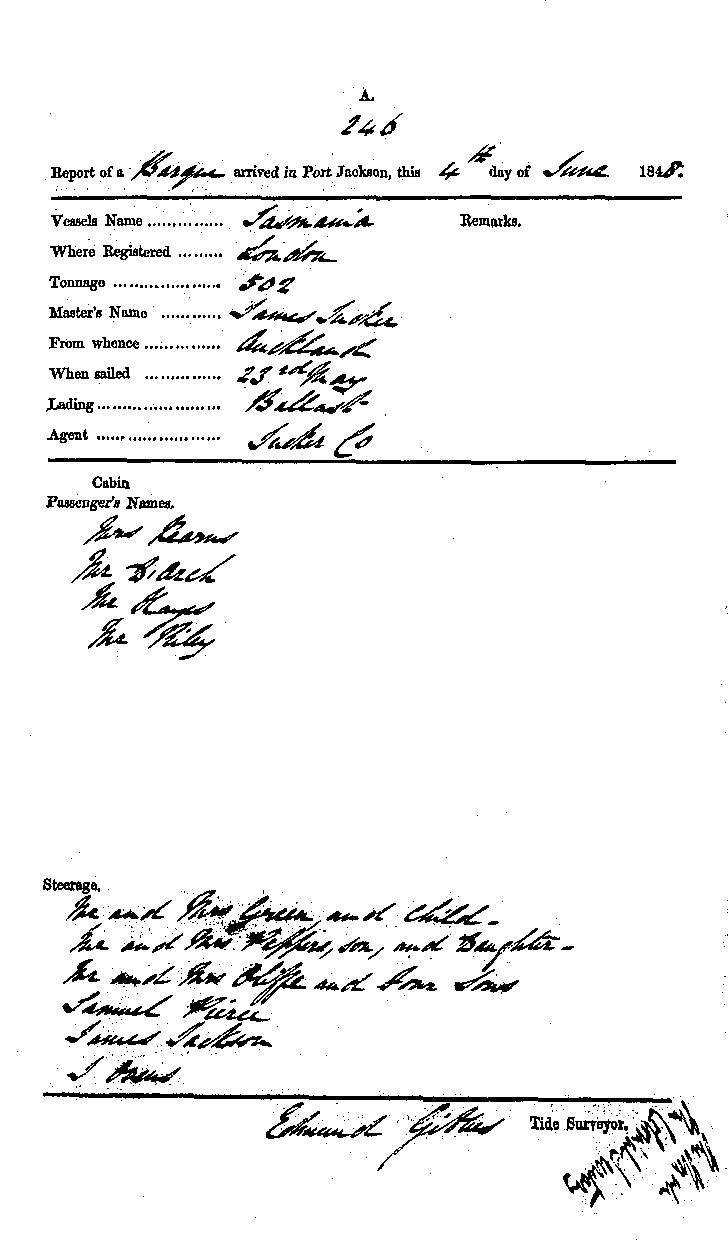 A.
246
Report of a Barque arrived in Port Jackson, this 4th day of June 1848.
Vessels Name ............... Tasmania Remarks.
Where Registered ......... London
Tonnage ..................... 502
Master's Name ............ James Tucker
From whence ............... Auckland
When sailed ............... 23rd May
Lading ........................ Ballast
Agent ........................ Tucker Co
Cabin
Passenger's Names.
Mrs Kearns
Mr D. Arch
Mr Hayes
Mr Riley
Steerage.
Mr and Mrs Green, and Child -
Mr and Mrs Peppers, son, and Daughter -
Mr and Mrs Oliffe and Four Sons
Samuel Pierce
James Jackson
J Owens
Edmund Gibbes Tide Surveyor.